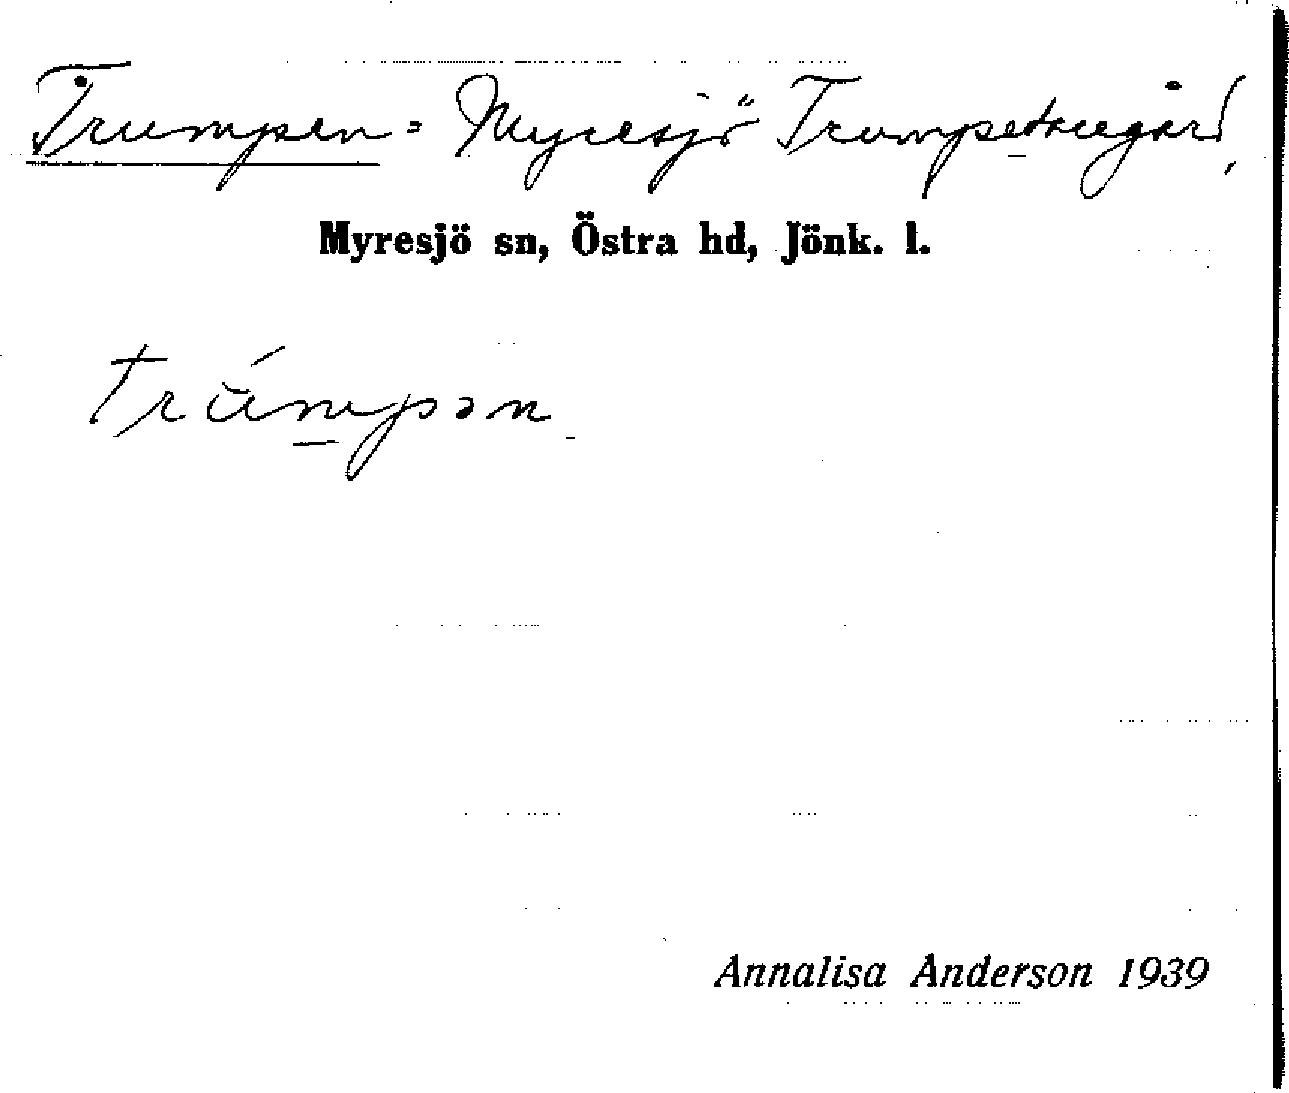 Trumpen = Myresjö Trumpetaregård,
Myresjö sn, Östra hd, Jönk. l.
trúmpən
Annalisa Anderson 1939